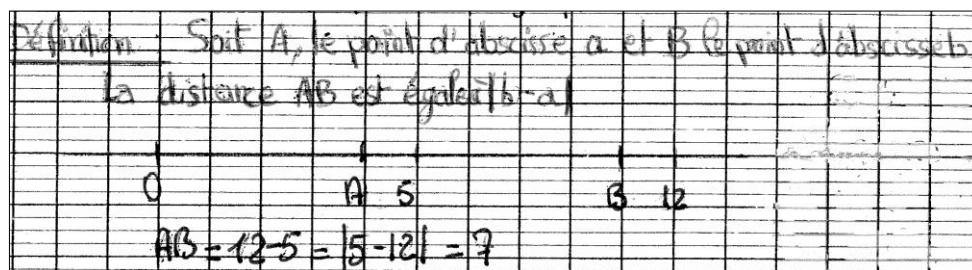 Définition : Soit A, le point d'abscisse a et B le point d'abscisse b.
La distance AB est égale à |b-a|
0 A 5 B 12
AB = 12-5 = |5-12| = 7